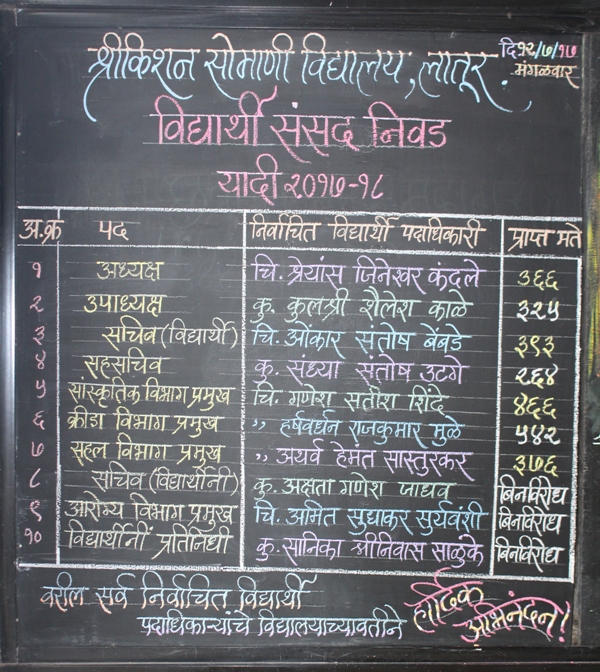 दि १२/७/१७
मंगळवार
श्रीकिशन सोमाणी विद्यालय, लातूर.
विद्यार्थी संसद निवड
यादी २०१७-१८
अ.क्र पद निर्वाचित विद्यार्थी पदाधिकारी प्राप्त मते
१ अध्यक्ष चि. श्रेयांस जिनेश्वर कंदले ३६६
२ उपाध्यक्ष कु. कुलश्री शैलेश काळे ३२५
३ सचिव (विद्यार्थी) चि. ओंकार संतोष बेंबडे ३९३
४ सहसचिव कु. संध्या संतोष उटगे २६४
५ सांस्कृतिक विभाग प्रमुख चि. गणेश सतीश शिंदे ४६६
६ क्रीडा विभाग प्रमुख ,, हर्षवर्धन राजकुमार मुळे ५४२
७ सहल विभाग प्रमुख ,, अथर्व हेमंत सास्तुरकर ३७६
८ सचिव (विद्यार्थीनी) कु. अक्षता गणेश जाधव बिनविरोध
९ आरोग्य विभाग प्रमुख चि. अमित सुधाकर सुर्यवंशी बिनविरोध
१० विद्यार्थीनीं प्रतिनिधी कु. सानिका श्रीनिवास साळुंके बिनविरोध
वरील सर्व निर्वाचित विद्यार्थी
पदाधिकाऱ्यांचे विद्यालयाच्यावतीने
हार्दिक
अभिनंदन!